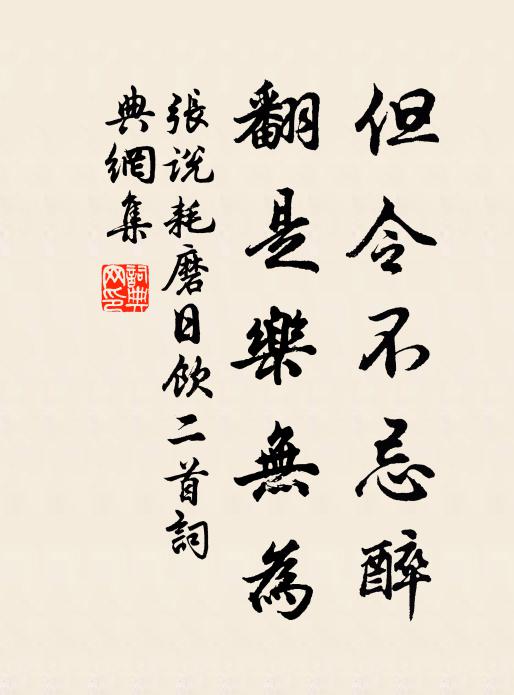 但令不忌醉
翻是樂無為
張說耗磨日飲二首詞
典網集
詞典網印